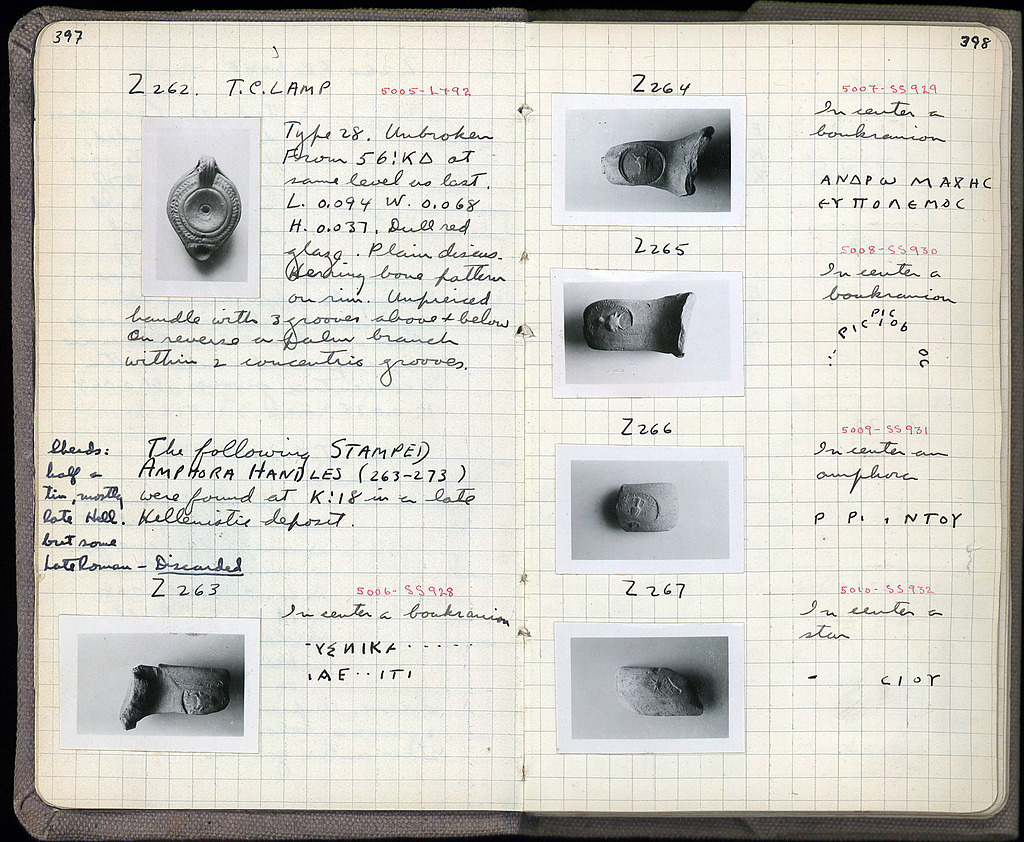 397
Z 262. T.C. LAMP 5005-L792
Type 28. Unbroken
From 56:ΚΔ at
same level as last.
L. 0.094 W. 0.068
H. 0.037. Dull red
glaze. Plain discus.
Herring bone pattern
on rim. Unpierced
handle with 3 grooves above + below
On reverse a palm branch
within 2 concentric grooves.
The following STAMPED
AMPHORA HANDLES (263-273)
were found at K:18 in a late
Hellenistic deposit.
Sherds:
half a
tin, mostly
late Hell.
but some
Late Roman - Discarded
Z 263 5006-SS928
In center a boukranion
ΥΣΝΙΚΑ
ΑΕ··ΙΤΙ
398
Z 264 5007-SS929
In center a
boukranion
ΑΝΔΡω ΜΑΧΗC
ЄΥΠΟΛΕΜΟC
Z 265 5008-SS930
In center a
boukranion
Z 266 5009-SS931
In center an
amphora
Ρ ΡΙ . ΝΤΟΥ
Z 267 5010-SS932
In center a
star
- CΙΟΥ